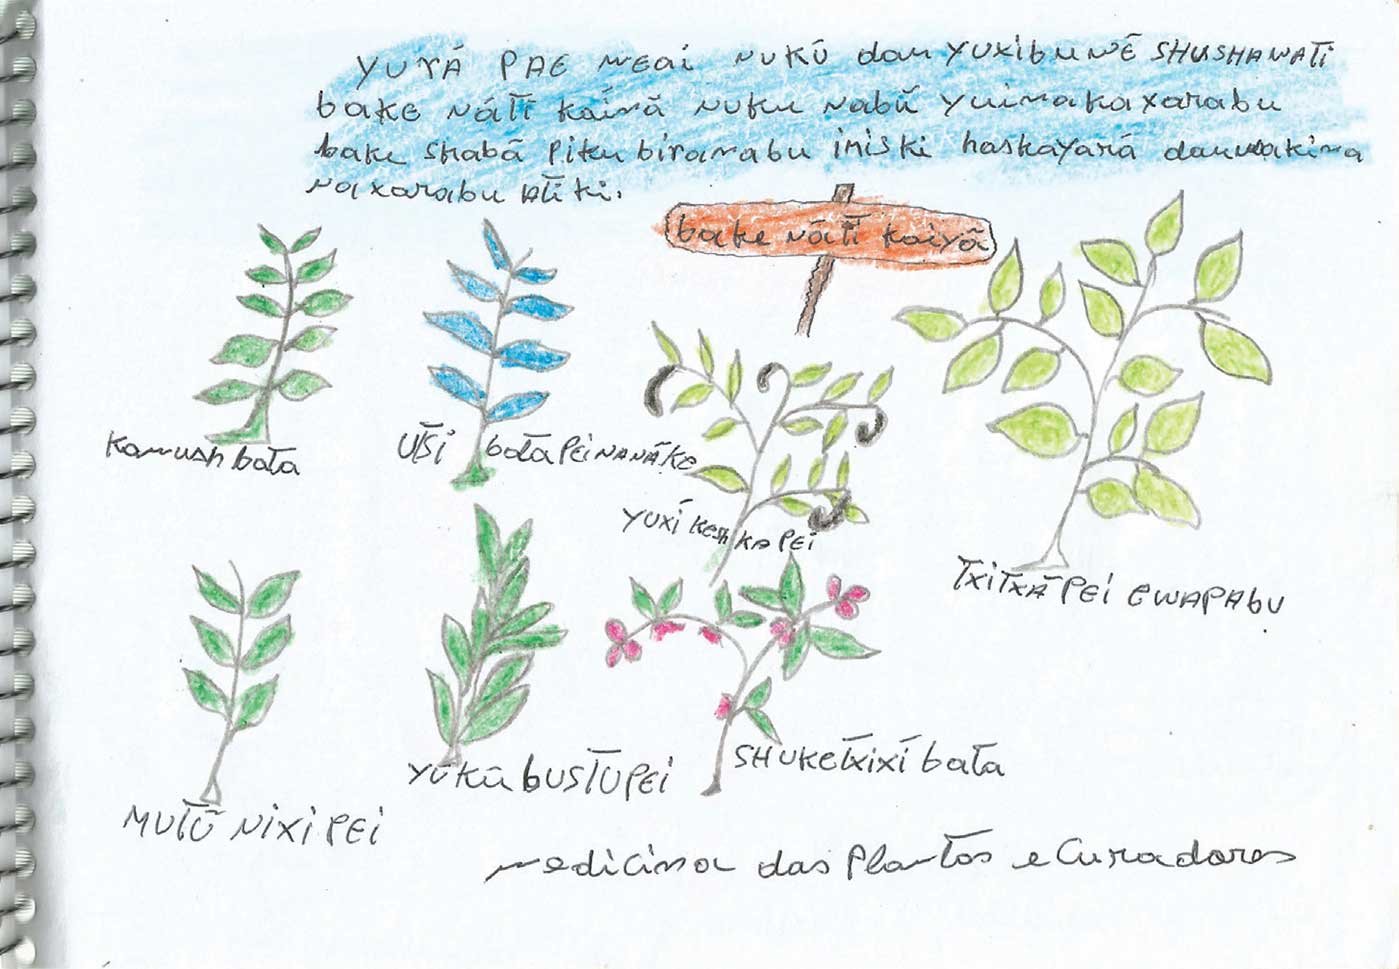 YURÁ PAE MEAI NUKŨ dau YUXIBUWẼ SHUSHAWATI
bake NÁTĨ kaínã nuku nabũ yuinakaxarabu
bake shabã piku biranabu iniski haskayará dauwakina
naxarabu ATIKI.
bake nátĩ kaiyã
kamush bata
UTSI bata PEI NANÃKE
YUXÍ keshKA PEI
TXITXÃ PEI EWAPABU
MUTŨ NIXI PEI
YŨKŨ BUSTU PEI
SHUKETXIXÍ bata
medicina das Plantas e Curadores